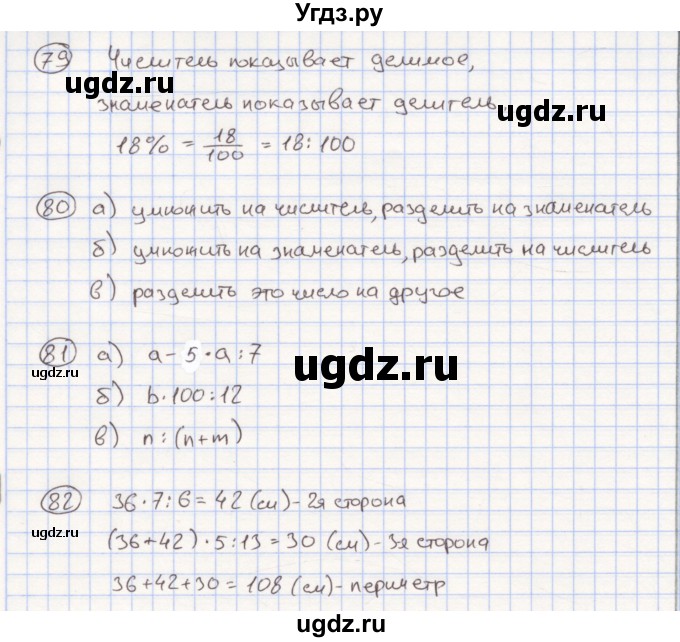 Угдз.ру
79 Числитель показывает делимое,
ugdz.ru
знаменатель показывает делитель.
ugdz.ru
18% = 18/100 = 18:100
80 а) умножить на числитель, разделить на знаменатель
б) умножить на знаменатель, разделить на числитель
в) разделить это число на другое
81 а) a - 5 · a : 7
ugdz.ru
ugdz.ru
б) b · 100 : 12
в) n : (n+m)
82 36 · 7 : 6 = 42 (см) - 2я сторона
ugdz.ru
(36+42) · 5 : 13 = 30 (см) - 3я сторона
36+42+30 = 108 (см) - периметр
ugdz.ru